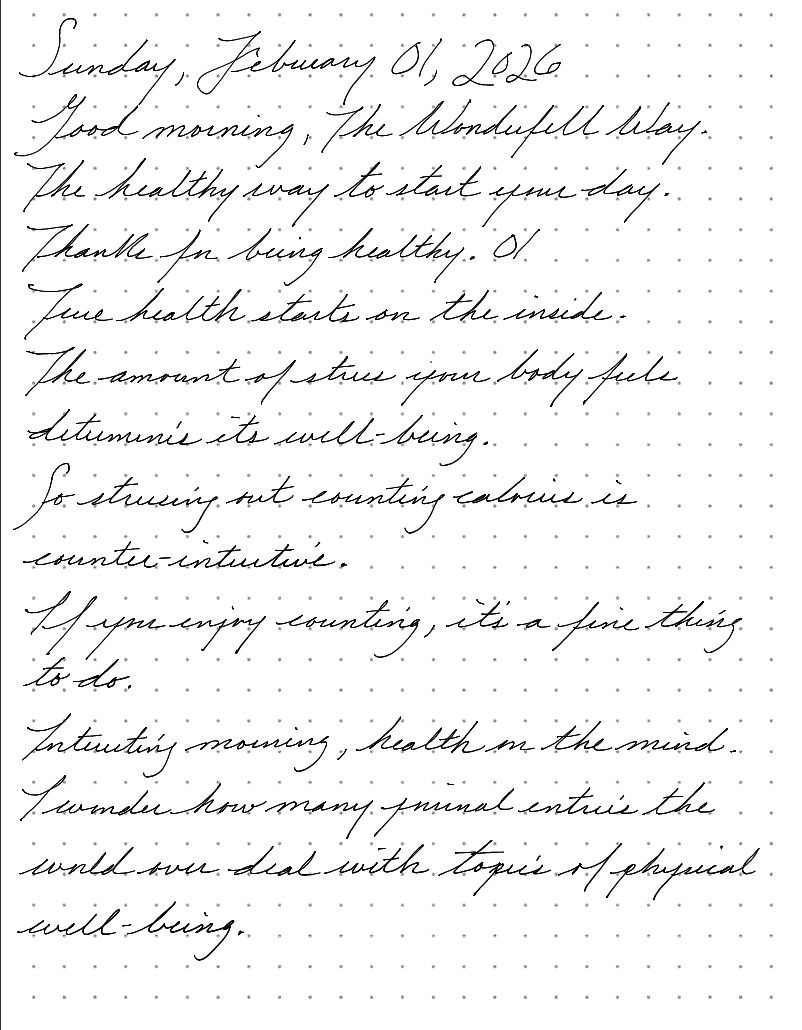 Sunday, February 01, 2026
Good morning, The Wonderfell Way.
The healthy way to start your day.
Thanks for being healthy. 01
True health starts on the inside.
The amount of stress your body feels
determines its well-being.
So stressing out counting calories is
counter-intuitive.
If you enjoy counting, it's a fine thing
to do.
Interesting morning, health on the mind.
I wonder how many journal entries the
world over deal with topics of physical
well-being.